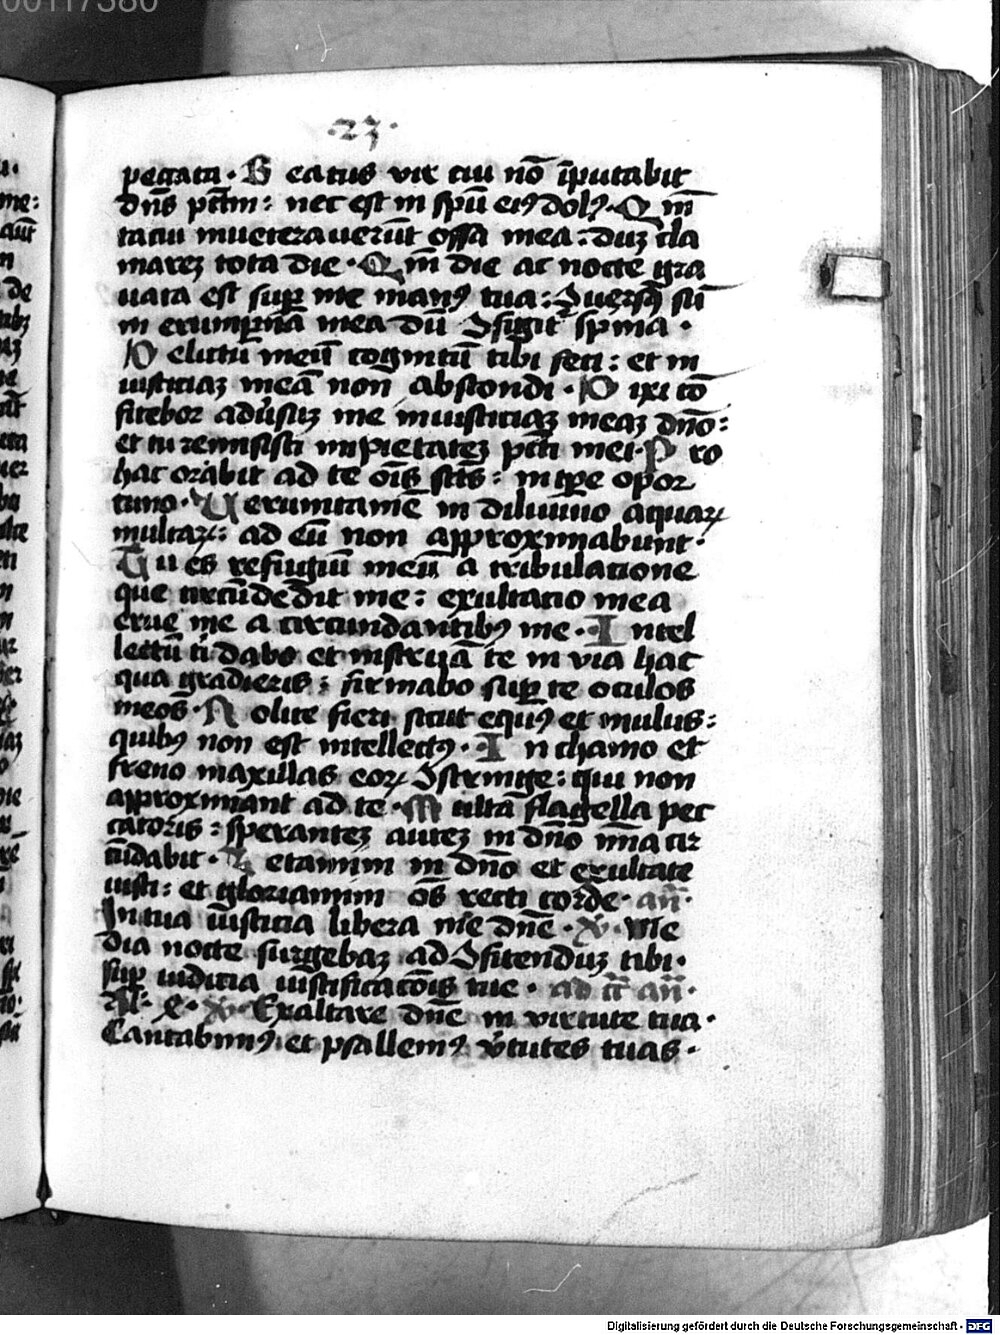 00117380
·23·
peccata · Beatus vir cui nō īputabit
dn̄s pctm̄: nec est in spū eiꝰ dolꝰ · Qm̄
tacui inueterauerūt ossa mea: duꝫ cla
mareꝫ tota die · Qm̄ die ac nocte gra
uata est sup me manꝰ tua: ꝯuersꝰ sū
in erumpna mea dū ꝯfigit᷑ spina ·
Delictū meū cognitū tibi feci: et in
iusticiaꝫ meā non abscondi · Dixi cō
fitebor aduersuꝫ me iniusticiaꝫ meaꝫ dn̄o:
et tu remisisti impietateꝫ pcti mei · Pro
hac orabit ad te ōis sctūs: in tp̄e opor
tuno · Uerumtamē in diluuio aquaꝝ
multaꝝ: ad eū non approximabunt ·
Tu es refugiū meū a tribulatione
que circūdedit me: exultatio mea
erue me a circumdantibꝰ me · Intel
lectū ti dabo et instruā te in via hac
qua gradieris: firmabo sup te oculos
meos · Nolite fieri sicut equꝰ et mulus:
quibꝰ non est intellectꝰ · In chamo et
freno maxillas eoꝝ ꝯstringe: qui non
approximant ad te · Multa flagella pec
catoris: speranteꝫ auteꝫ in dn̄o mīa cir
cūdabit · Letamini in dn̄o et exultate
iusti: et gloriamini ōs recti corde · an̄ ·
In tua iusticia libera me dn̄e · V · Me
dia nocte surgebaꝫ ad ꝯfitenduꝫ tibi ·
sup iudicia iustificatōis tue · ad ct̄ an̄ ·
V · Exaltare dn̄e in virtute tua ·
Cantabimꝰ et psallemꝰ v̓tutes tuas ·
Digitalisierung gefördert durch die Deutsche Forschungsgemeinschaft - DFG